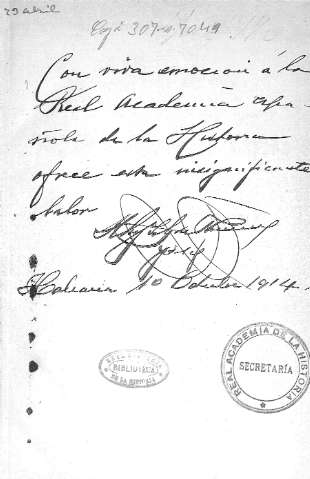 29 abril
Caja 307-nº 7049
Con viva emoción á la
Real Academia Espa-
ñola de la Historia
ofrece esta insignificante
labor
Habana 10 Octubre 1914.
BIBLIOTECA
DE LA HISTORIA
REAL ACADEMIA DE LA HISTORIA
SECRETARÍA